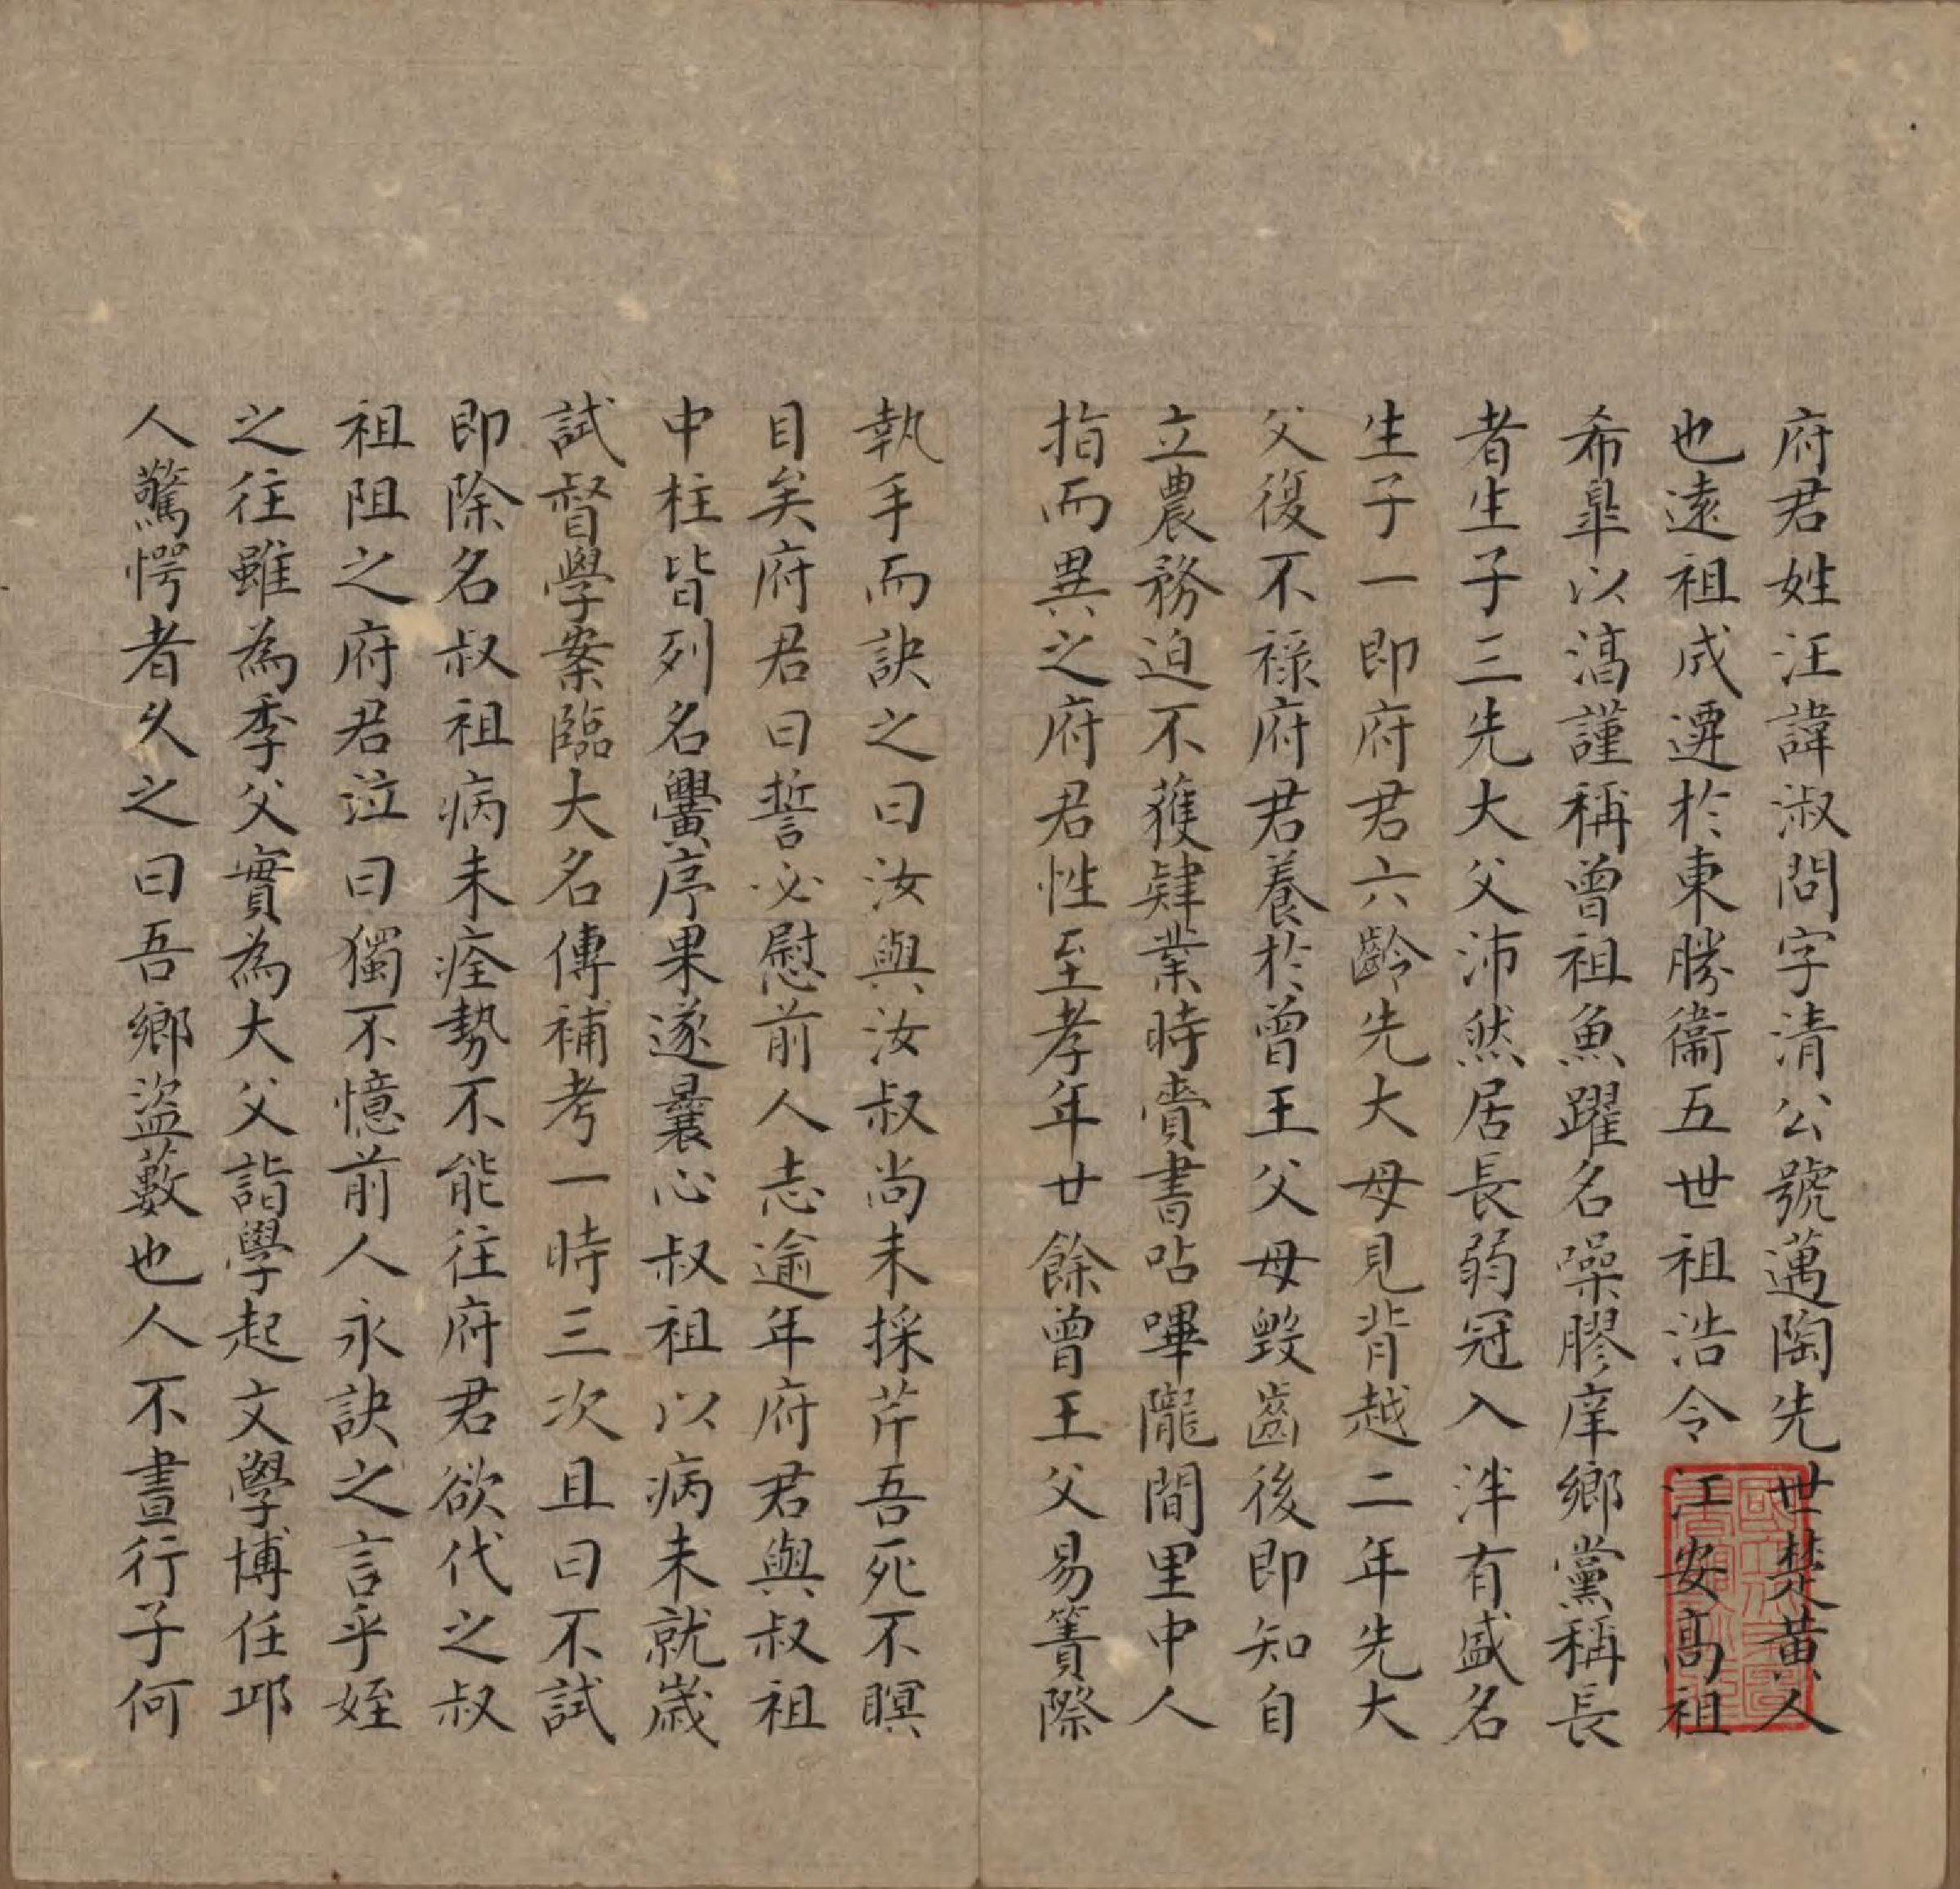 府君姓汪諱淑問字清公號邁陶先世楚黄人
也遠祖成遷於東勝衞五世祖浩令江安髙祖
希皐以滈謹稱曾祖魚躍名噪膠庠鄉黨稱長
者生子三先大父沛然居長弱冠入泮有盛名
生子一即府君六齡先大母見背越二年先大
父復不祿府君養於曾王父母毀齒後即知自
立農務迫不獲肄業時賷書呫嗶隴間里中人
指而異之府君性至孝年廿餘曾王父易簀際
執手而訣之曰汝與汝叔尚未採芹吾死不瞑
目矣府君曰誓必慰前人志逾年府君與叔祖
中柱皆列名黌序果遂曩心叔祖以病未就歲
試督學案臨大名傳補考一時三次且曰不試
即除名叔祖病未痊勢不能往府君欲代之叔
祖阻之府君泣曰獨不憶前人永訣之言乎姪
之往雖為季父實為大父詣學起文學博任邱
人驚愕者久之曰吾鄉盜藪也人不晝行子何